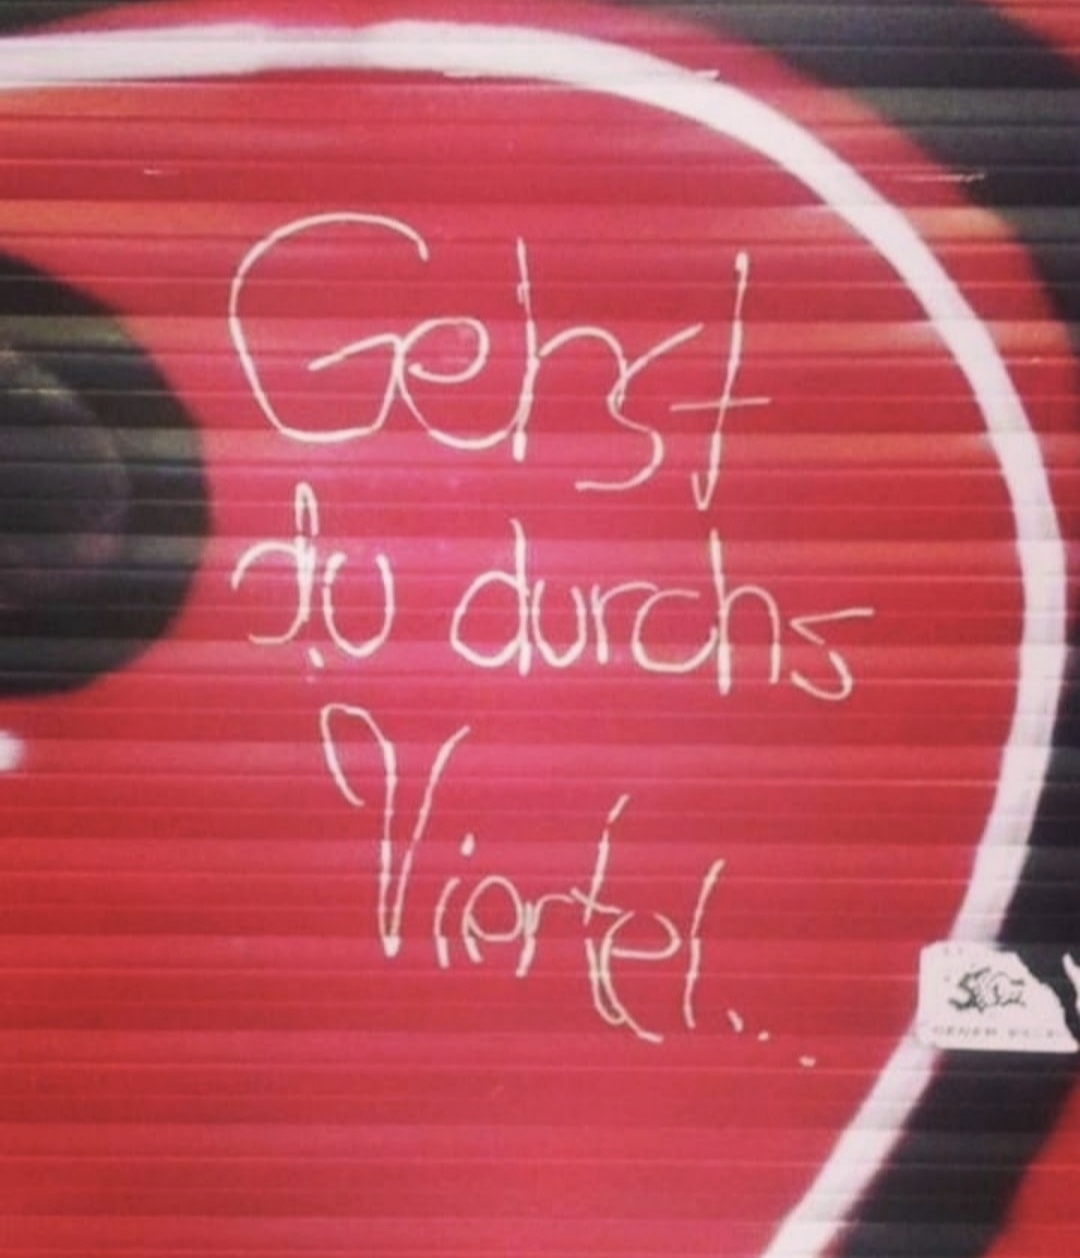 Gehst
du durchs
Viertel...